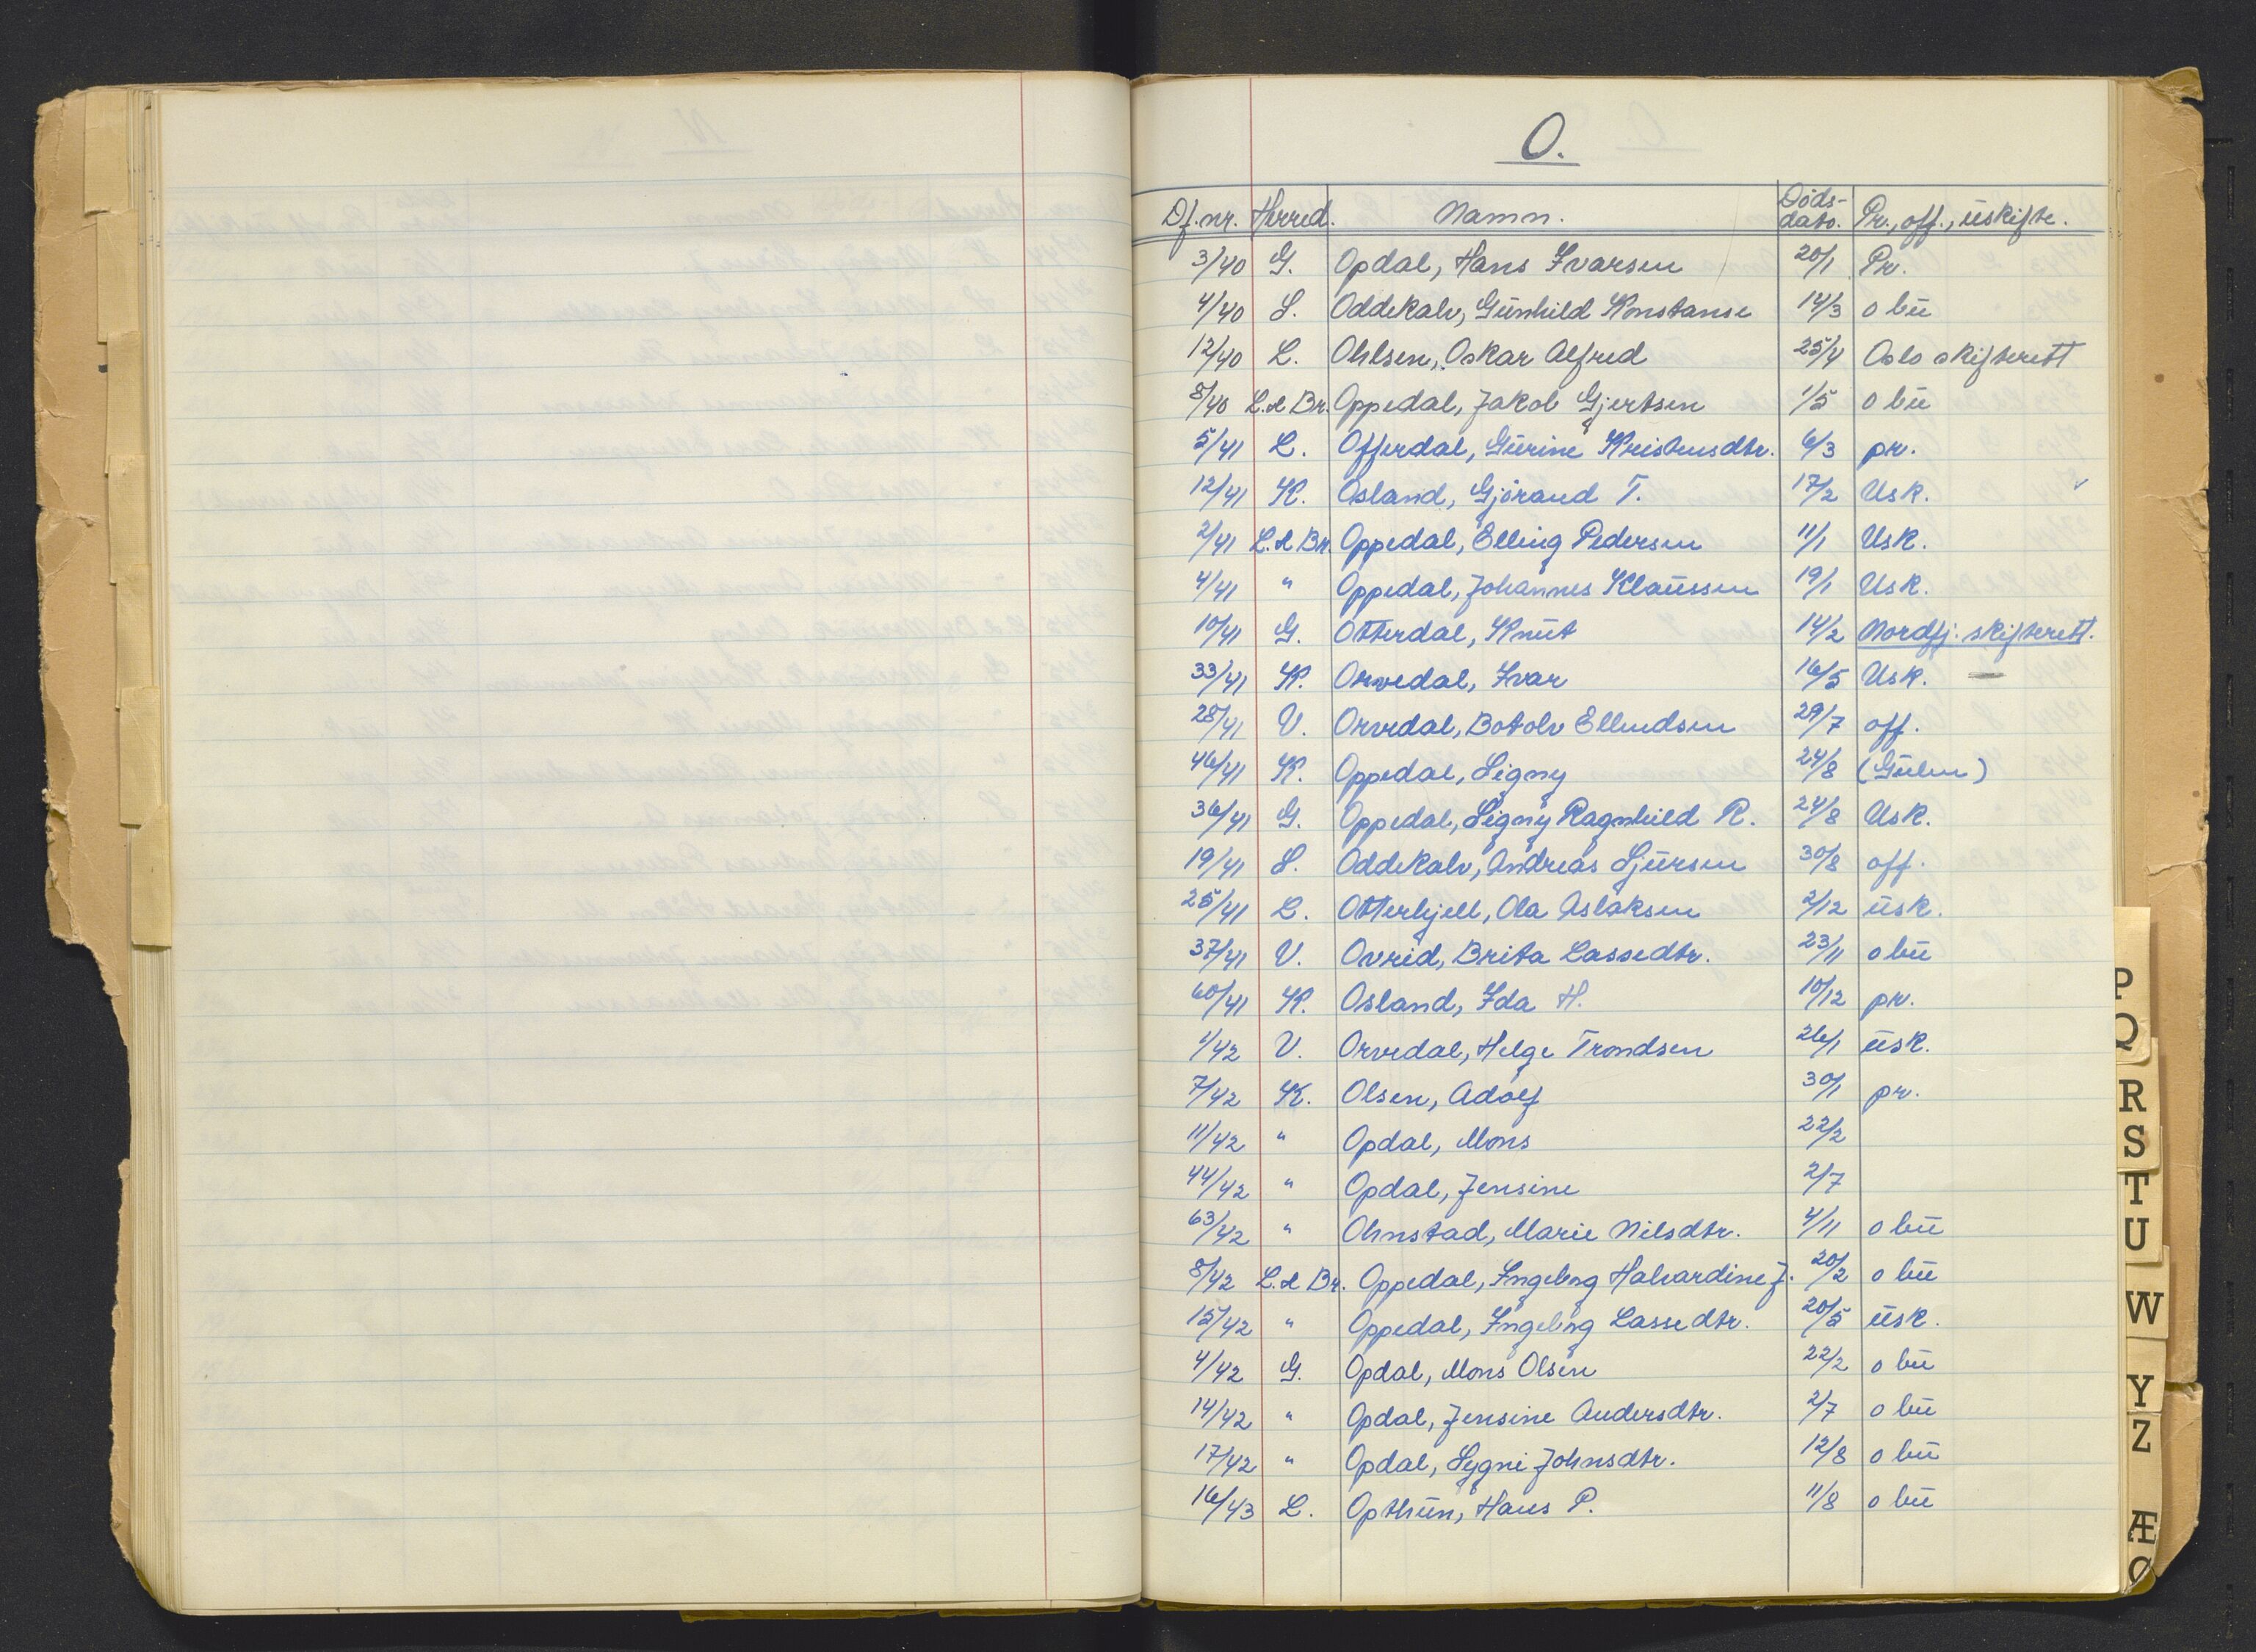 O.
Df.nr. Herred. Namn. Døds-dato. Pr., off., uskifte.
3/40 G. Opdal, Hans Ivarsen 20/1 Pr.
4/40 S. Oddekalv, Gunhild Konstanse 14/3 o bu
12/40 L. Ohlsen, Oskar Alfred 25/4 Oslo skifterett
8/40 L. & Br. Oppedal, Jakob Gjertsen 1/5 o bu
5/41 L. Offerdal, Gurine Kristensdtr. 6/3 pr.
12/41 K. Osland, Gjørand T. 17/2 Usk. ✓
2/41 L. & Br. Oppedal, Elling Pedersen 11/1 Usk.
4/41 " Oppedal, Johannes Klaussen 19/1 Usk.
10/41 G. Otterdal, Knut 14/2 Nordfj. skifterett.
33/41 K. Orvedal, Ivar 16/5 Usk.
28/41 V. Orvedal, Botolv Ellendsen 29/7 off.
46/41 K. Oppedal, Signy 24/8 (Gulen)
36/41 G. Oppedal, Signy Ragnhild R. 24/8 Usk.
19/41 S. Oddekalv, Andreas Sjursen 30/8 off.
25/41 L. Otterhjell, Ola Aslaksen 2/12 usk.
37/41 V. Ovrid, Brita Lassedtr. 23/11 o bu
60/41 K. Osland, Ida H. 10/12 pr.
1/42 V. Orvedal, Helge Trondsen 26/1 usk.
7/42 K. Olsen, Adolf 30/1 pr.
11/42 " Opdal, Mons 22/2
44/42 " Opdal, Jensine 2/7
63/42 " Ohnstad, Marie Nilsdtr. 4/11 o bu
8/42 L. & Br. Oppedal, Ingebrg Halvardine J. 20/2 o bu
15/42 " Oppedal, Ingebrg Lassedtr. 20/5 usk.
4/42 G. Opdal, Mons Olsen 22/2 o bu
14/42 " Opdal, Jensine Andersdtr. 2/7 o bu
17/42 " Opdal, Sygni Johnsdtr. 12/8 o bu
16/43 L. Opthun, Hans P. 11/8 o bu
P
Q
R
S
T
U
W
Y
Z
Æ
Ø